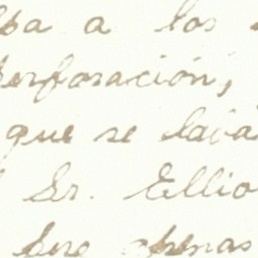 a los
perforación,
que se lava
Sr. Ellio
apenas